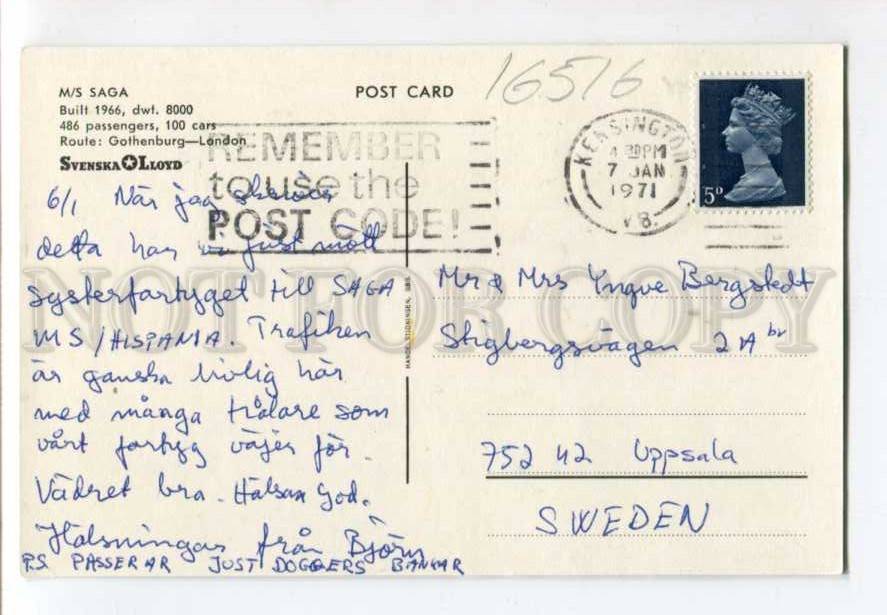 M/S SAGA
Built 1966, dwt. 8000
486 passengers, 100 cars
Route: Gothenburg—London
SVENSKA LLOYD
POST CARD
16516
REMEMBER
to use the
POST CODE!
KENSINGTON
4 30PM
7 JAN
1971
W8.
5ᴰ
6/1 När jag skriver
detta har vi just mött
systerfartyget till SAGA
MS/HISPANIA. Trafiken
är ganska livlig här
med många trålare som
vårt fartyg väjer för.
Vädret bra. Hälsan god.
Hälsningar från Björn
P.S PASSERAR JUST DOGGERS BANKAR
Mr & Mrs Yngve Bergstedt
Stigbergsvägen 2A bv
752 42 Uppsala
SWEDEN
NOT FOR COPY